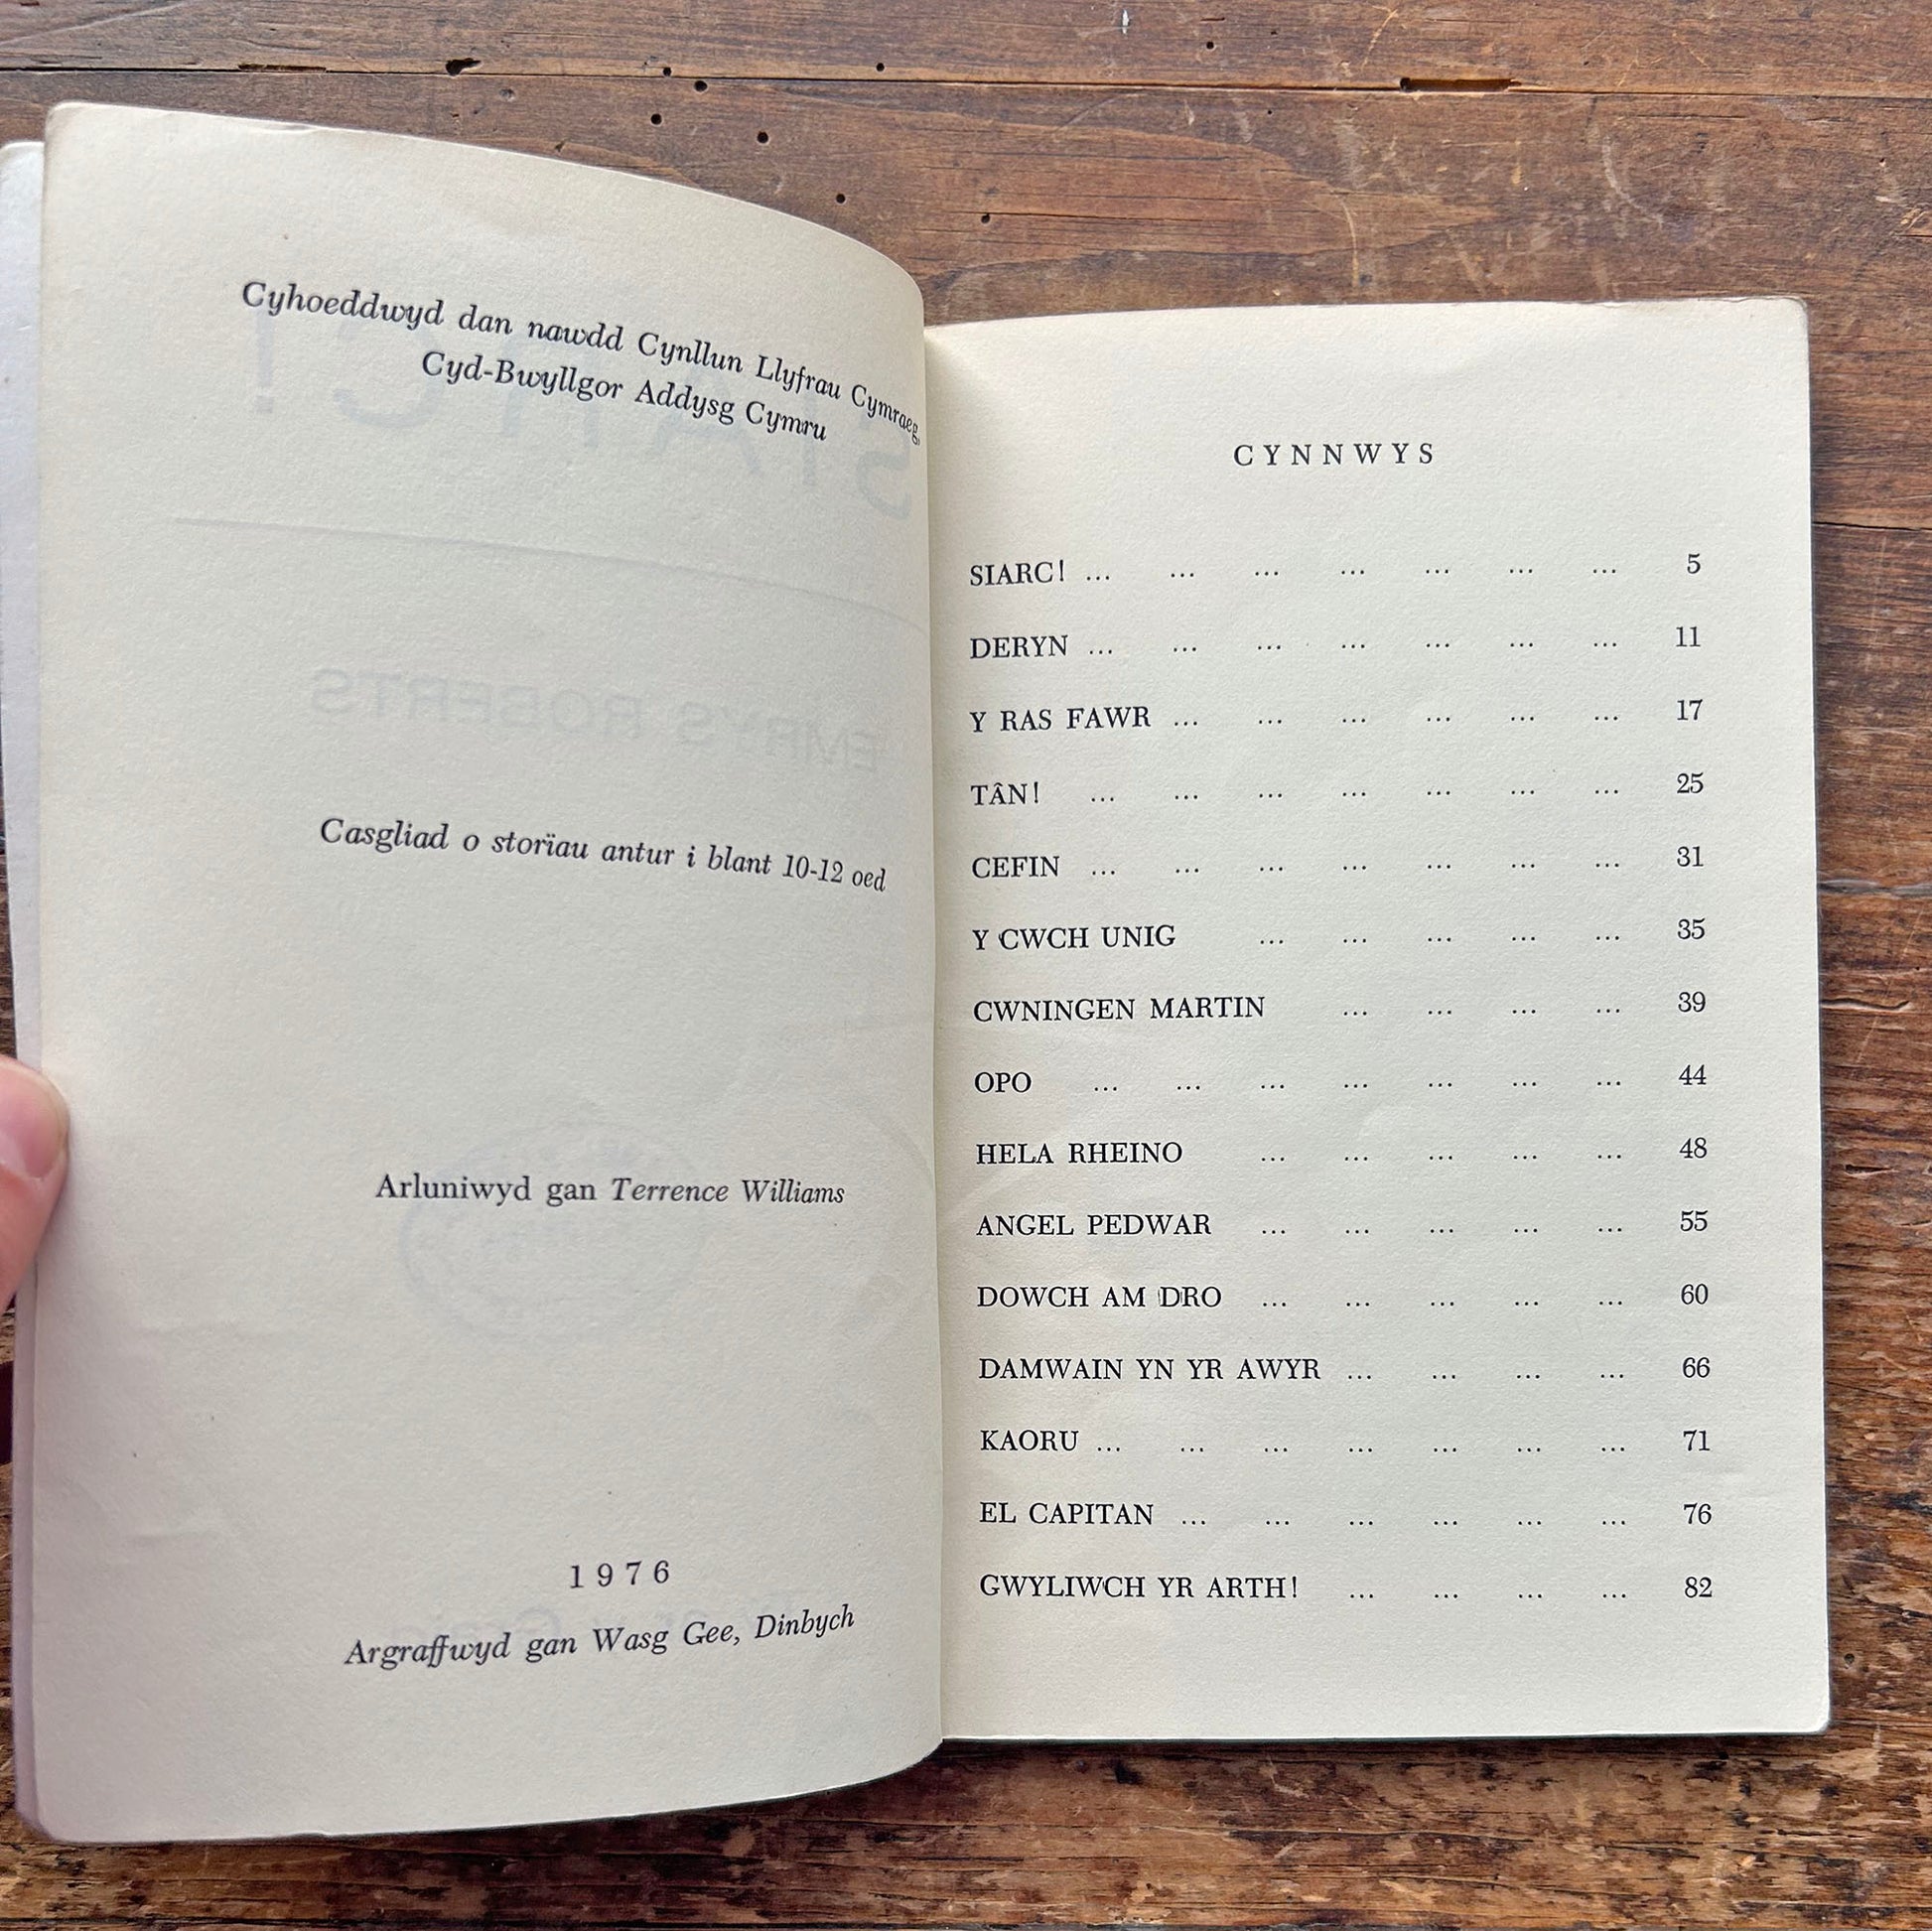 Cyhoeddwyd dan nawdd Cynllun Llyfrau Cymraeg,
Cyd-Bwyllgor Addysg Cymru
Casgliad o storïau antur i blant 10-12 oed
Arluniwyd gan Terrence Williams
1976
Argraffwyd gan Wasg Gee, Dinbych
CYNNWYS
SIARC! ... ... ... ... ... ... ... 5
DERYN ... ... ... ... ... ... ... 11
Y RAS FAWR ... ... ... ... ... ... 17
TÂN! ... ... ... ... ... ... ... 25
CEFIN ... ... ... ... ... ... ... 31
Y CWCH UNIG ... ... ... ... ... 35
CWNINGEN MARTIN ... ... ... ... 39
OPO ... ... ... ... ... ... ... 44
HELA RHEINO ... ... ... ... ... 48
ANGEL PEDWAR ... ... ... ... ... 55
DOWCH AM DRO ... ... ... ... ... 60
DAMWAIN YN YR AWYR ... ... ... ... 66
KAORU ... ... ... ... ... ... ... 71
EL CAPITAN ... ... ... ... ... ... 76
GWYLIWCH YR ARTH! ... ... ... ... 82